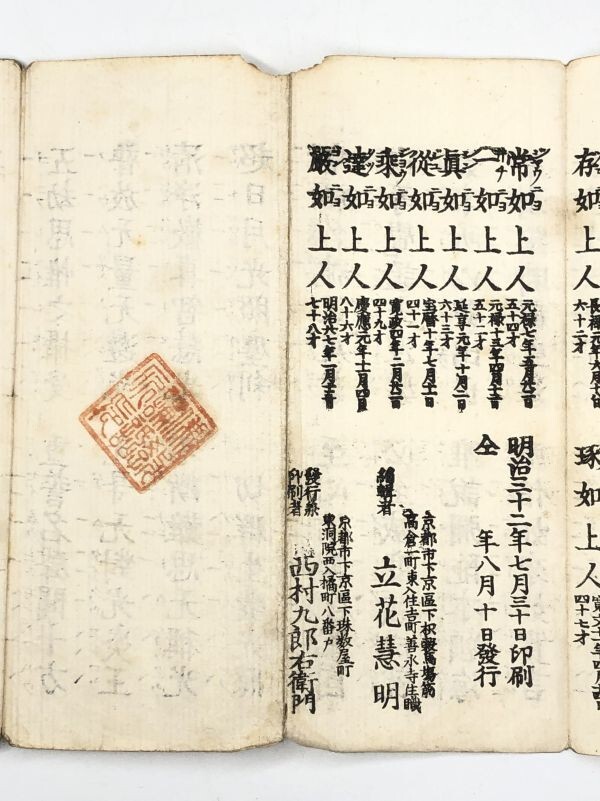 存如上人
長禄元年六月十八日
六十二才
琢如上人
四十七才
常如上人
ジヤウニヨ
元禄七年五月廿二日
五十四才
一如上人
元禄十三年四月十二日
五十二才
眞如上人
シンニヨ
延享元年十月二日
六十三才
從如上人
宝暦十年七月十一日
四十一才
乘如上人
ジヨウニヨ
寛政四年二月廿二日
四十九才
達如上人
慶應元年十一月四日
八十六才
嚴如上人
明治廿七年一月十五日
七十八才
明治三十二年七月三十日印刷
仝 年八月十日發行
京都市下京區下枳殻馬場
高倉一町東入住吉町善永寺住職
編輯者
立花慧明
京都市下京區下珠数屋町
東洞院西入橘町八番戸
發行兼
印刷者
西村九郎右衛門